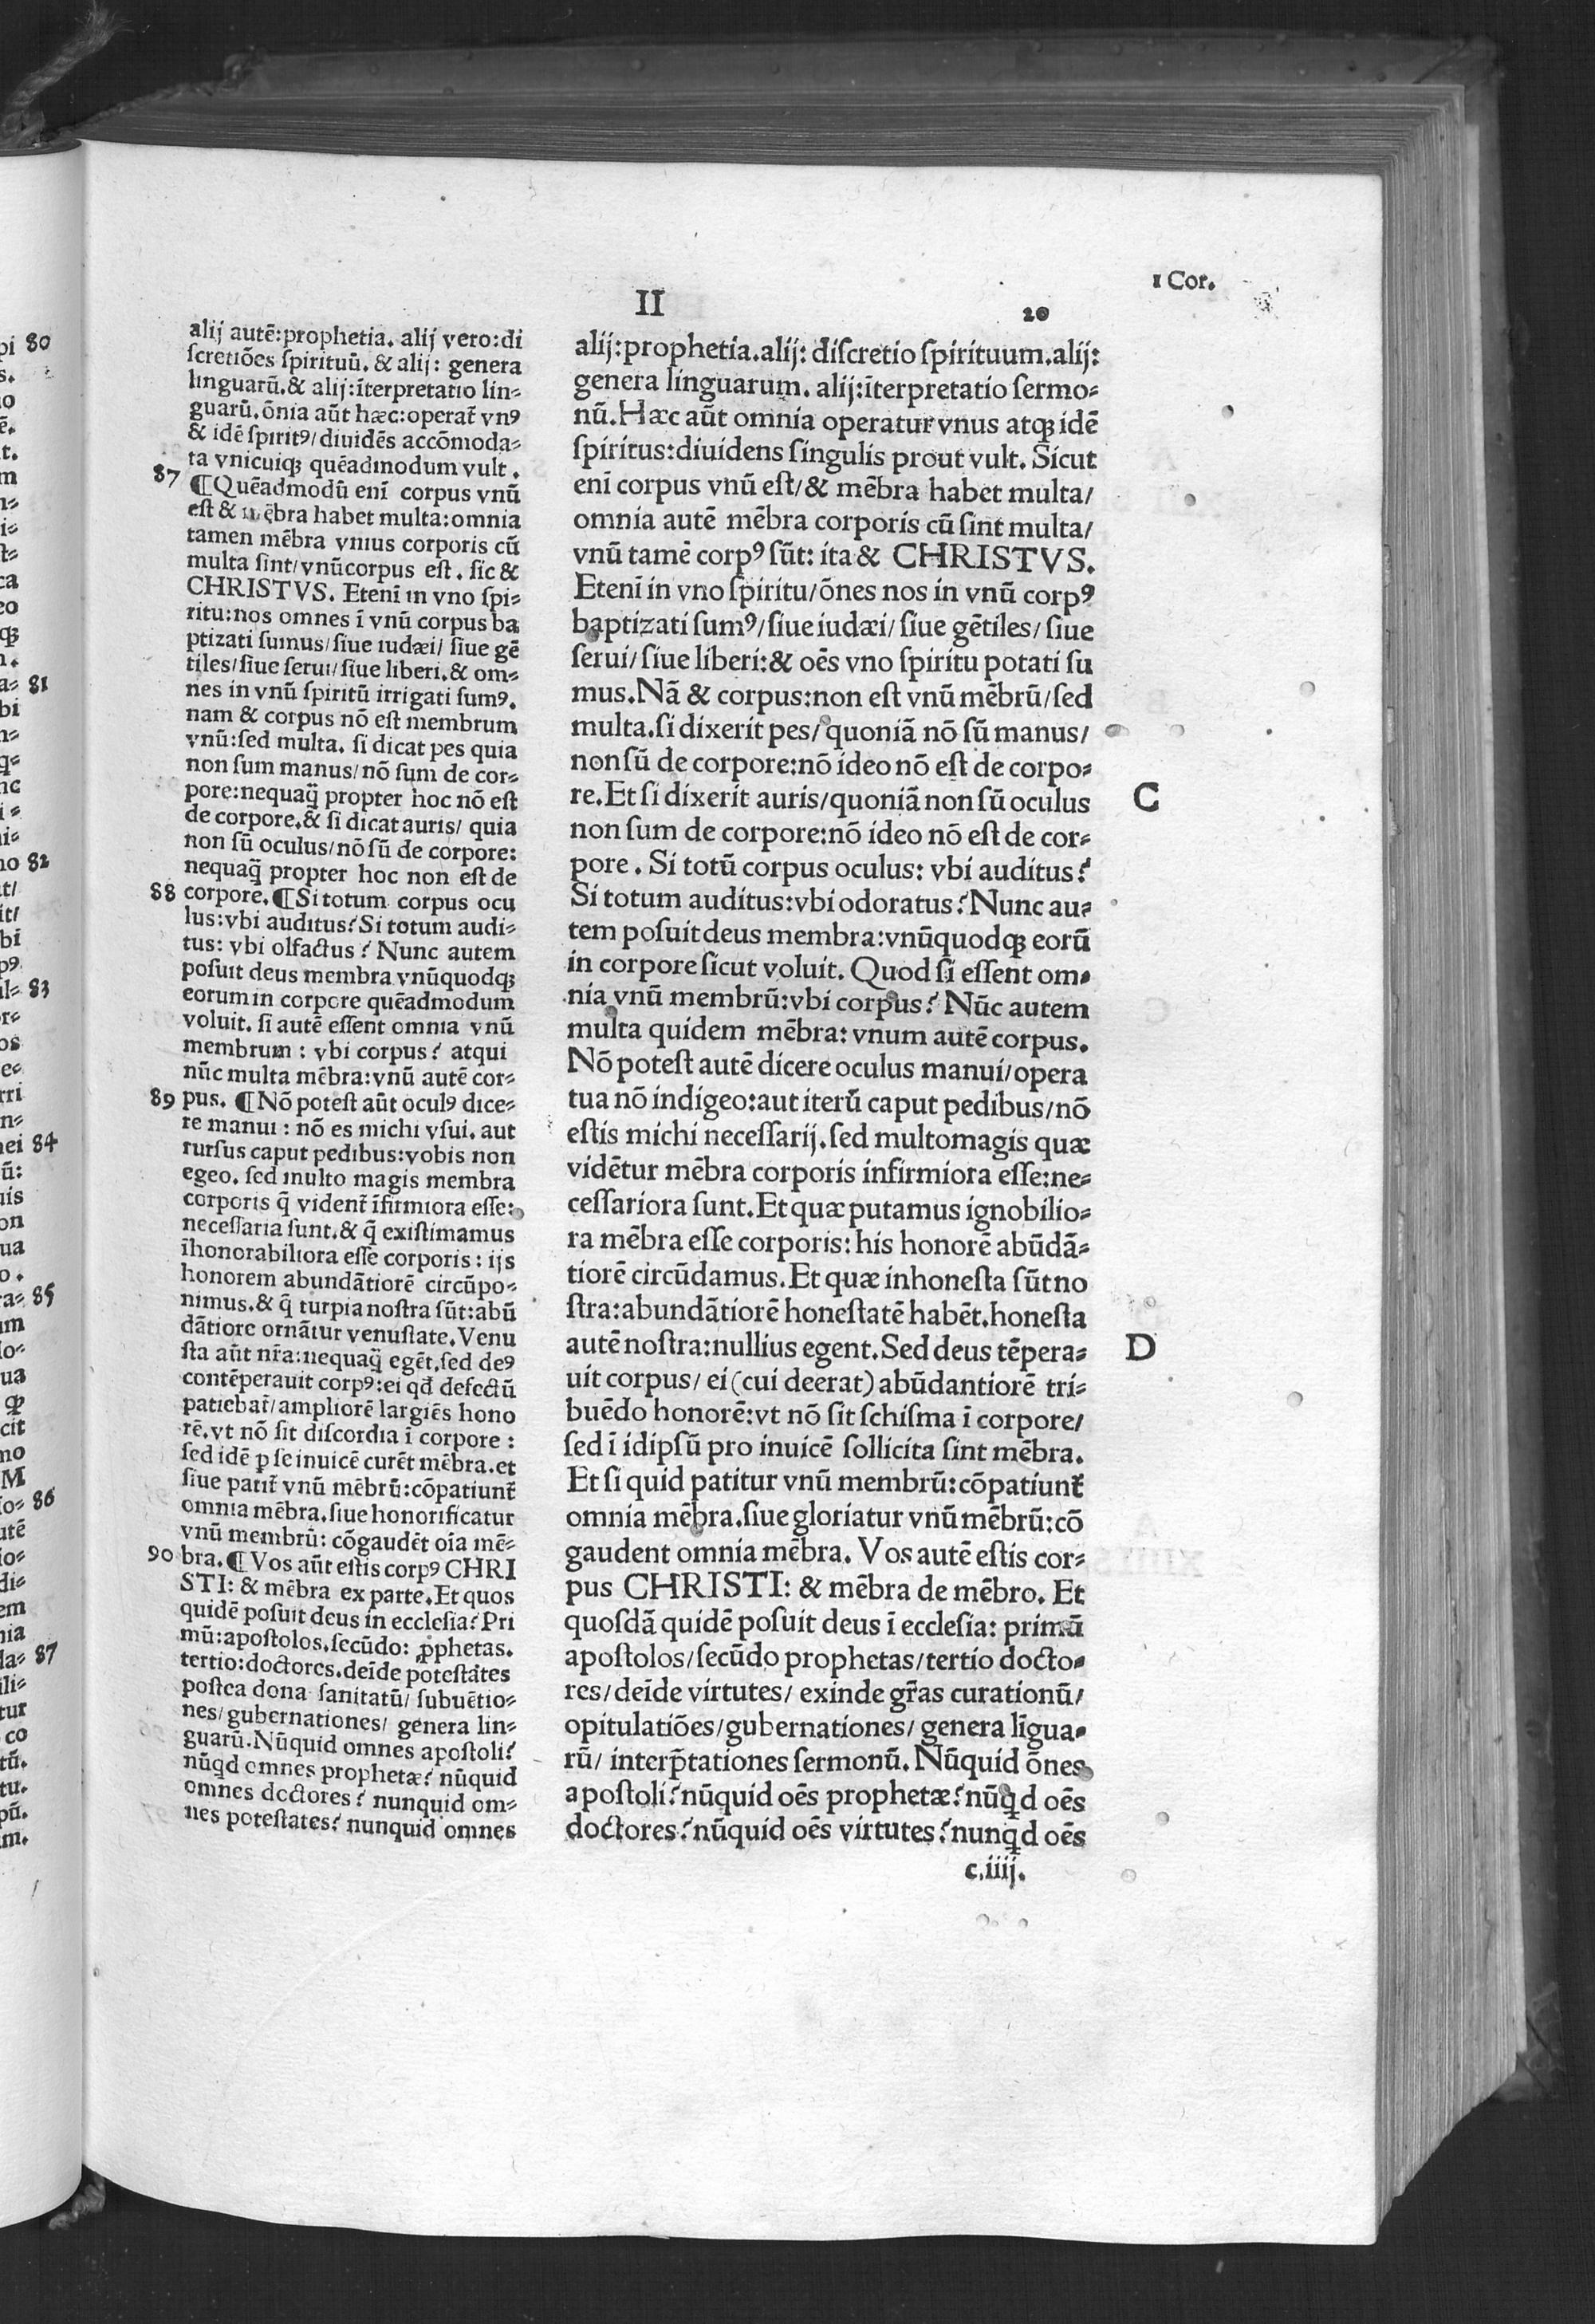 1 Cor.
II
20
alij autē:prophetia. alij vero:di
ſcretiões ſpirituū. & alij: genera
linguarū.& alij:īterpretatio lin-
guarū. ōnia aūt hæc:operat᷑ vnꝰ
& idē ſpiritꝰ/diuidēs accōmoda-
ta vnicuiqꝫ quēadmodum vult.
87
¶Quēadmodū enī corpus vnū
est & mēbra habet multa:omnia
tamen mēbra vnius corporis cū
multa ſint/vnūcorpus eſt. ſic &
CHRISTVS. Etenī in vno ſpi-
ritu:nos omnes ī vnū corpus ba
ptizati ſumus/ſiue iudæi/ ſiue gē
tiles/ſiue ſerui/ſiue liberi.& om-
nes in vnū ſpiritū irrigati ſumꝰ.
nam & corpus nō eſt membrum
vnū:ſed multa. ſi dicat pes quia
non ſum manus/nō ſum de cor-
pore:nequaq̃ propter hoc nō eſt
de corpore.& ſi dicat auris/ quia
non ſū oculus/nō ſū de corpore:
nequaq̃ propter hoc non eſt de
88 corpore.¶Si totum corpus ocu
lus:vbi auditus? Si totum audi-
tus: vbi olfactus? Nunc autem
poſuit deus membra vnūquodqꝫ
eorum in corpore quēadmodum
voluit. ſi autē eſſent omnia vnū
membrum: vbi corpus? atqui
nūc multa mēbra:vnū autē cor-
89 pus. ¶Nō poteſt aūt oculꝰ dice-
re manui: nō es michi vſui. aut
rurſus caput pedibus:vobis non
egeo. ſed multo magis membra
corporis q̄ vident᷑ īfirmiora eſſe:
neceſſaria ſunt.& q̄ exiſtimamus
īhonorabiliora eſſe corporis: ijs
honorem abundātiorē circūpo-
nimus.& q̄ turpia noſtra ſūt:abū
dātiore ornātur venuſtate. Venu
ſta aūt nr̄a:nequaq̃ egēt.ſed deꝰ
contēperauit corpꝰ:ei qđ defectū
patiebat᷑/ampliorē largiēs hono
rē.vt nō ſit diſcordia ī corpore:
ſed idē ꝑ ſe inuicē curēt mēbra.et
ſiue patit᷑ vnū mēbrū:cōpatiunt᷑
omnia mēbra.ſiue honorificatur
vnū membrū: cōgaudēt oīa mē-
90 bra.¶ Vos aūt eſtis corpꝰ CHRI
STI: & mēbra ex parte. Et quos
quidē poſuit deus in eccleſia? Pri
mū:apoſtolos.ſecūdo: ꝓphetas.
tertio:doctores.deīde poteſtates
poſtea dona ſanitatū/ ſubuētio-
nes/gubernationes/ genera lin-
guarū. Nūquid omnes apoſtoli?
nūqd omnes prophetæ? nūquid
omnes doctores? nunquid om-
nes poteſtates? nunquid omnes
alij:prophetia.alij: diſcretio ſpirituum.alij:
genera linguarum. alij:īterpretatio ſermo-
nū. Hæc aūt omnia operatur vnus atqꝫ idē
ſpiritus:diuidens ſingulis prout vult. Sicut
enī corpus vnū eſt/& mēbra habet multa/
omnia autē mēbra corporis cū ſint multa/
vnū tamē corpꝰ ſūt: ita & CHRISTVS.
Etenī in vno ſpiritu/ōnes nos in vnū corpꝰ
baptizati ſumꝰ/ſiue iudæi/ ſiue gētiles/ ſiue
ſerui/ſiue liberi:& oēs vno ſpiritu potati ſu
mus. Nā & corpus:non eſt vnū mēbrū/ſed
multa.ſi dixerit pes/quoniā nō ſū manus/
non ſū de corpore:nō ideo nō eſt de corpo-
re. Et ſi dixerit auris/quoniā non ſū oculus
C
non ſum de corpore:nō ideo nō eſt de cor-
pore. Si totū corpus oculus: vbi auditus?
Si totum auditus:vbi odoratus? Nunc au-
tem poſuit deus membra:vnūquodqꝫ eorū
in corpore ſicut voluit. Quod ſi eſſent om-
nia vnū membrū:vbi corpus? Nūc autem
multa quidem mēbra: vnum autē corpus.
Nō poteſt autē dicere oculus manui/opera
tua nō indigeo:aut iterū caput pedibus/nō
eſtis michi neceſſarij. ſed multomagis quæ
vidētur mēbra corporis infirmiora eſſe:ne-
ceſſariora ſunt. Et quæ putamus ignobilio-
ra mēbra eſſe corporis: his honorē abūdā-
tiorē circūdamus. Et quæ inhoneſta ſūt no
ſtra:abundātiorē honeſtatē habēt.honeſta
autē noſtra:nullius egent. Sed deus tēpera-
D
uit corpus/ ei (cui deerat) abūdantiorē tri-
buēdo honorē:vt nō ſit ſchiſma ī corpore/
ſed ī idipſū pro inuicē ſollicita ſint mēbra.
Et ſi quid patitur vnū membrū:cōpatiunt᷑
omnia mēbra.ſiue gloriatur vnū mēbrū:cō
gaudent omnia mēbra. Vos autē eſtis cor-
pus CHRISTI: & mēbra de mēbro. Et
quoſdā quidē poſuit deus ī eccleſia: primū
apoſtolos/ſecūdo prophetas/tertio docto-
res/deīde virtutes/ exinde gr̄as curationū/
opitulatiōes/gubernationes/ genera līgua-
rū/ interp̄tationes ſermonū. Nūquid ōnes
apoſtoli? nūquid oēs prophetæ? nūq̇d oēs
doctores? nūquid oēs virtutes? nunq̇d oēs
c.iiij.